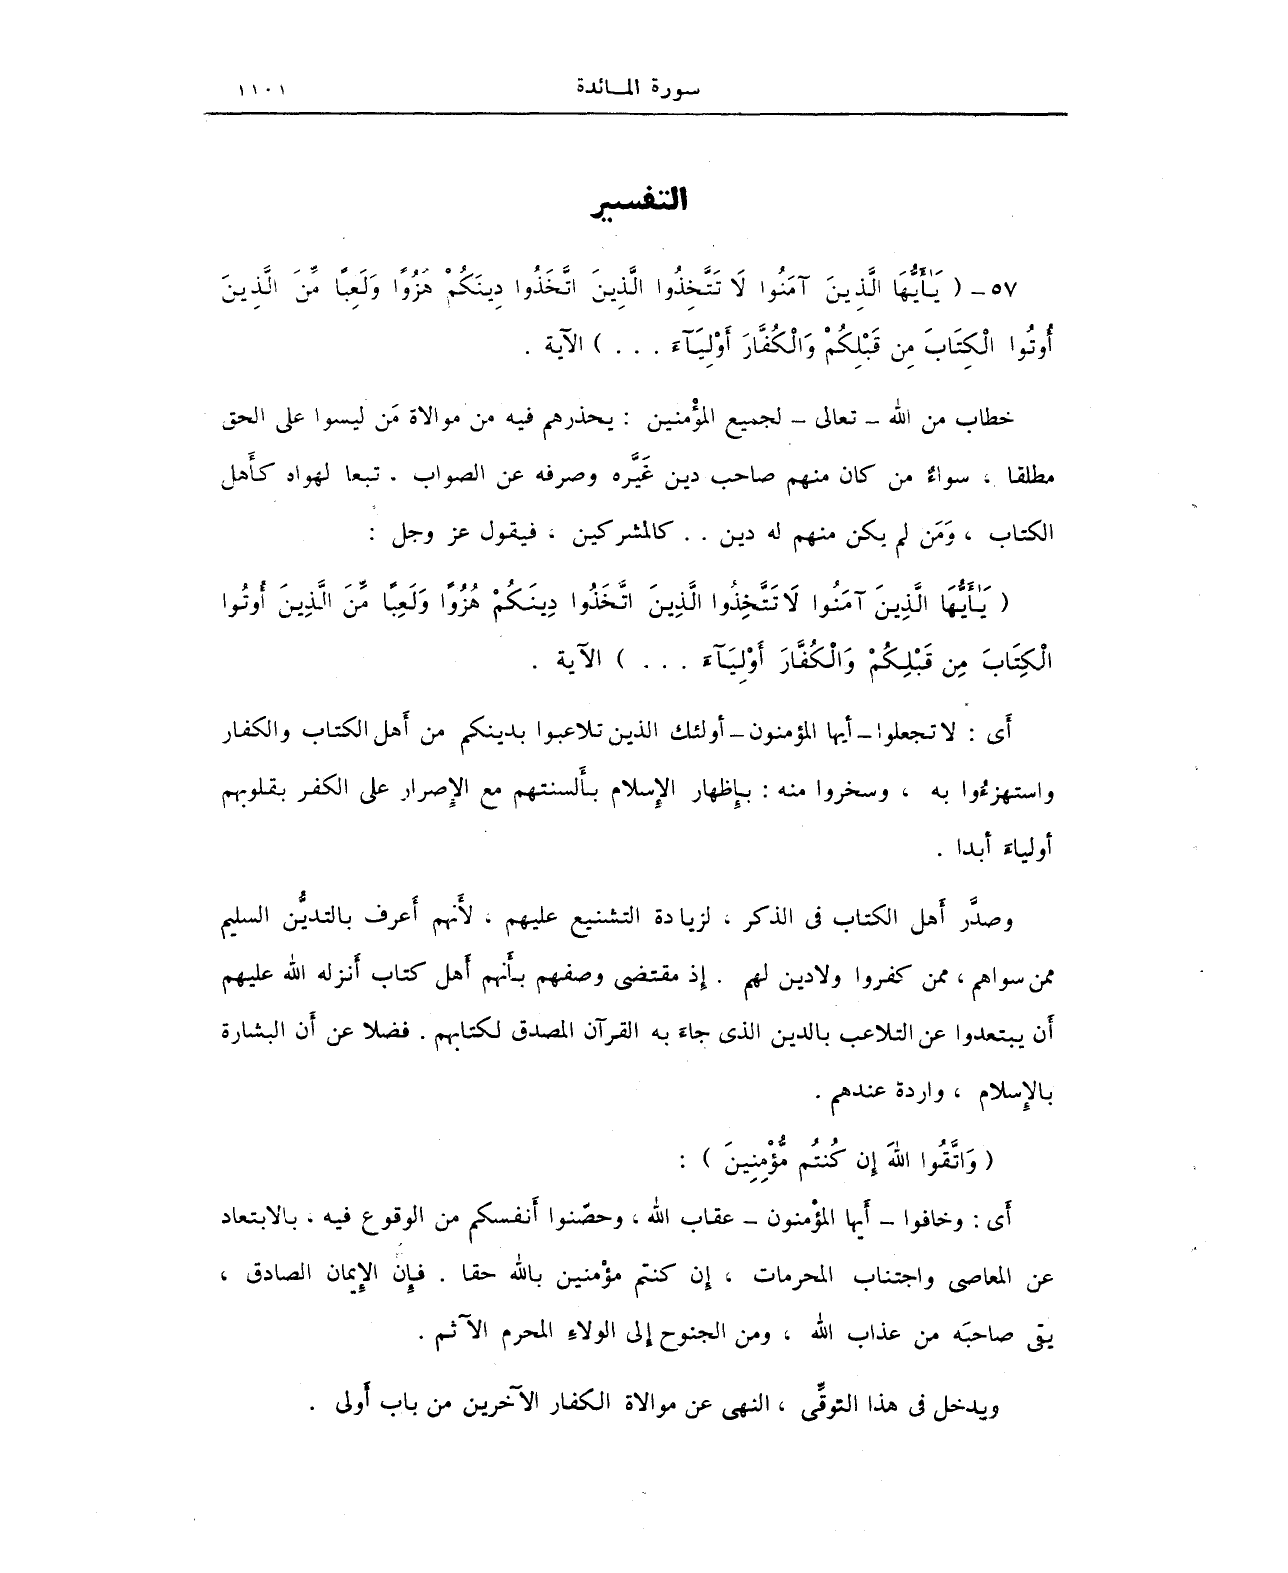 سورة المائدة ١١٠١
التفسير
٥٧ـ ( يَٰٓأَيُّهَا الَّذِينَ آمَنُوا لَا تَتَّخِذُوا الَّذِينَ اتَّخَذُوا دِينَكُمْ هَزُوًا وَلَعِبًا مِّنَ الَّذِينَ
أُوتُوا الْكِتَابَ مِن قَبْلِكُمْ وَالْكُفَّارَ أَوْلِيَآءَ . . . ) الآية .
خطاب من الله ـ تعالى ـ لجميع المؤْمنين : يحذرهم فيه من موالاة مَن ليسوا على الحق
مطلقا ، سواءٌ من كان منهم صاحب دين غَيَّره وصرفه عن الصواب . تبعا لهواه كأَهل
الكتاب ، وَمَن لم يكن منهم له دين . . كالمشركين ، فيقول عز وجل :
( يَٰٓأَيُّهَا الَّذِينَ آمَنُوا لَا تَتَّخِذُوا الَّذِينَ اتَّخَذُوا دِينَكُمْ هُزُوًا وَلَعِبًا مِّنَ الَّذِينَ أُوتُوا
الْكِتَابَ مِن قَبْلِكُمْ وَالْكُفَّارَ أَوْلِيَآءَ . . . ) الآية .
أَى : لا تجعلوا ـ أيها المؤمنون ـ أولئك الذين تلاعبوا بدينكم من أَهل الكتاب والكفار
واستهزءُوا به ، وسخروا منه : بإِظهار الإِسلام بأَلسنتهم مع الإِصرار على الكفر بقلوبهم
أولياءَ أبدا .
وصدَّر أَهل الكتاب فى الذكر ، لزيادة التشنيع عليهم ، لأَنهم أَعرف بالتديُّن السليم
ممن سواهم ، ممن كفروا ولادين لهم . إذ مقتضى وصفهم بأَنهم أَهل كتاب أَنزله الله عليهم
أَن يبتعدوا عن التلاعب بالدين الذى جاءَ به القرآن المصدق لكتابهم . فضلا عن أَن البشارة
بالإِسلام ، واردة عندهم .
( وَاتَّقُوا اللهَ إِن كُنتُم مُّؤْمِنِينَ ) :
أَى : وخافوا ـ أَيها المؤْمنون ـ عقاب الله ، وحصّنوا أَنفسكم من الوقوع فيه ، بالابتعاد
عن المعاصى واجتناب المحرمات ، إِن كنتم مؤْمنين بالله حقا . فإِن الإِيمان الصادق ،
يقى صاحبَه من عذاب الله ، ومن الجنوح إِلى الولاءِ المحرم الآثم .
ويدخل فى هذا التوقِّى ، النهى عن موالاة الكفار الآخرين من باب أَولى .